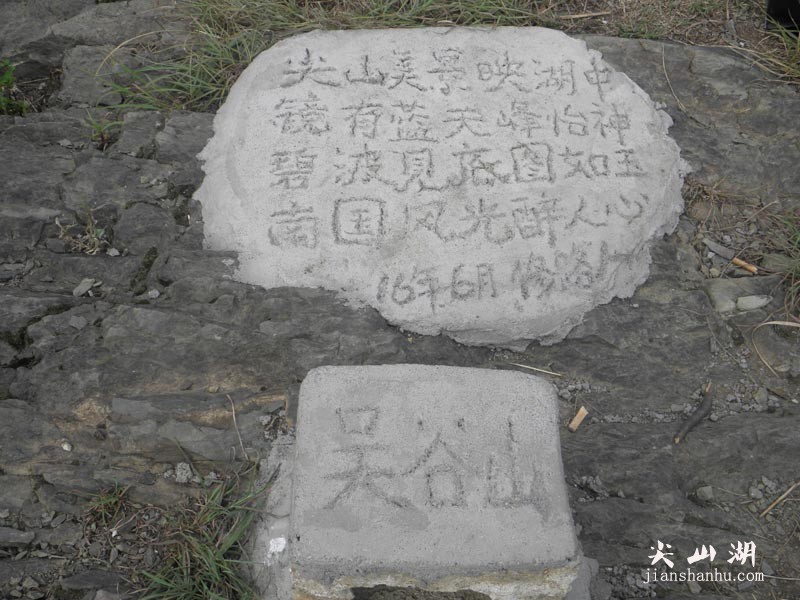 尖山美景映湖中
镜有蓝天峰怡神
碧波见底图如玉
南国风光醉人心
16年6月修路人
吴谷山
尖山湖
jianshanhu.com